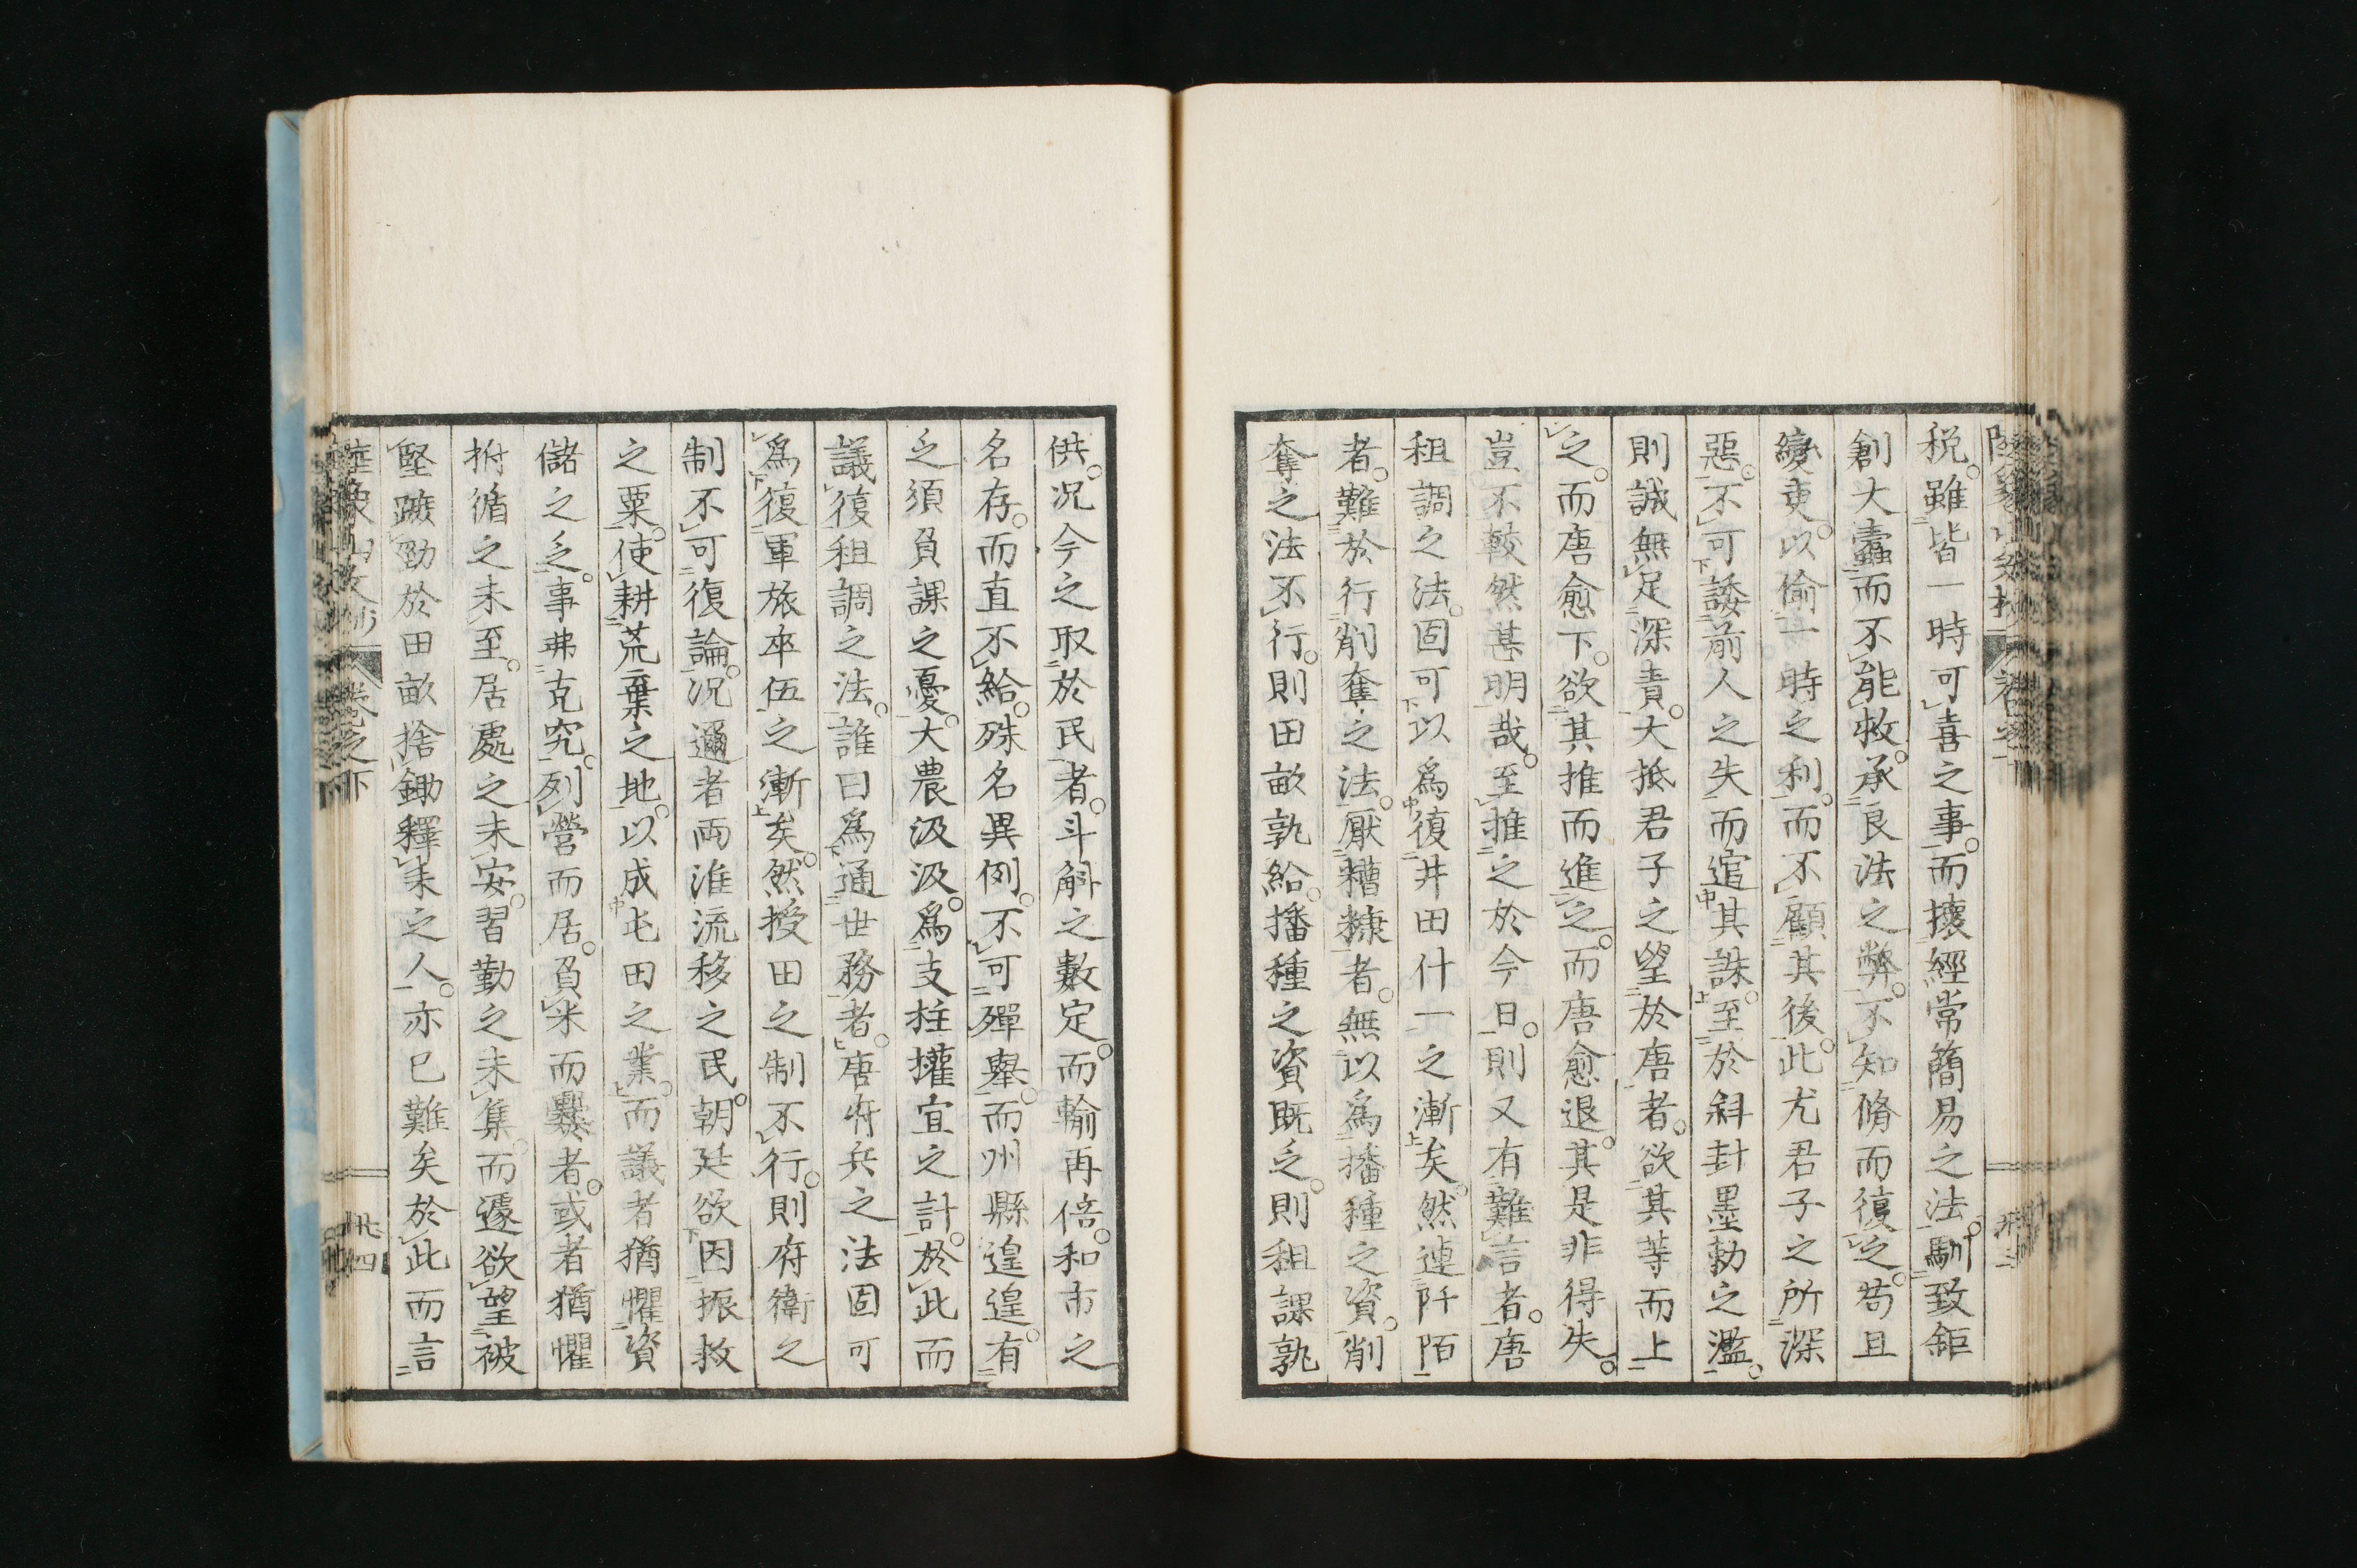 税。雖皆一時可喜之事。而壞經常簡易之法。馴致鉅
創大蠹而不能救。承良法之弊。不知脩而復之。苟且
變吏。以偷一時之利。而不顧其後。此尤君子之所深
惡。不可諉前人之失而逭其誅。至於斜封墨勅之濫。
則誠無足深責。大抵君子之望於唐者。欲其等而上
之。而唐愈下。欲其推而進之。而唐愈退。其是非得失。
豈不較然甚明哉。至推之於今日。則又有難言者。唐
租調之法。固可以爲復井田什一之漸矣。然連阡陌
者。難於行削奪之法。厭糟糠者。無以爲播種之資。削
奪之法不行。則田畝孰給。播種之資既乏。則租課孰
供。况今之取於民者。斗斛之數定。而輸再倍。和市之
名存。而直不給。殊名異例。不可殫舉。而州縣遑遑。有
乏須負課之憂。大農汲汲。爲支拄權宜之計。於此而
議復租調之法。誰曰爲通世務者。唐府兵之法固可
爲復軍旅卒伍之漸矣。然授田之制不行。則府衛之
制不可復論。况邇者兩淮流移之民。朝廷欲因振救
之粟。使耕荒棄之地。以成屯田之業。而議者猶懼資
儲之乏。事弗克究。列營而居。負米而爨者。或者猶懼
拊循之未至。居處之未安。習勤之未集。而遽欲望被
堅蹶勁於田畝捨鋤釋耒之人。亦已難矣於此而言
卷之下